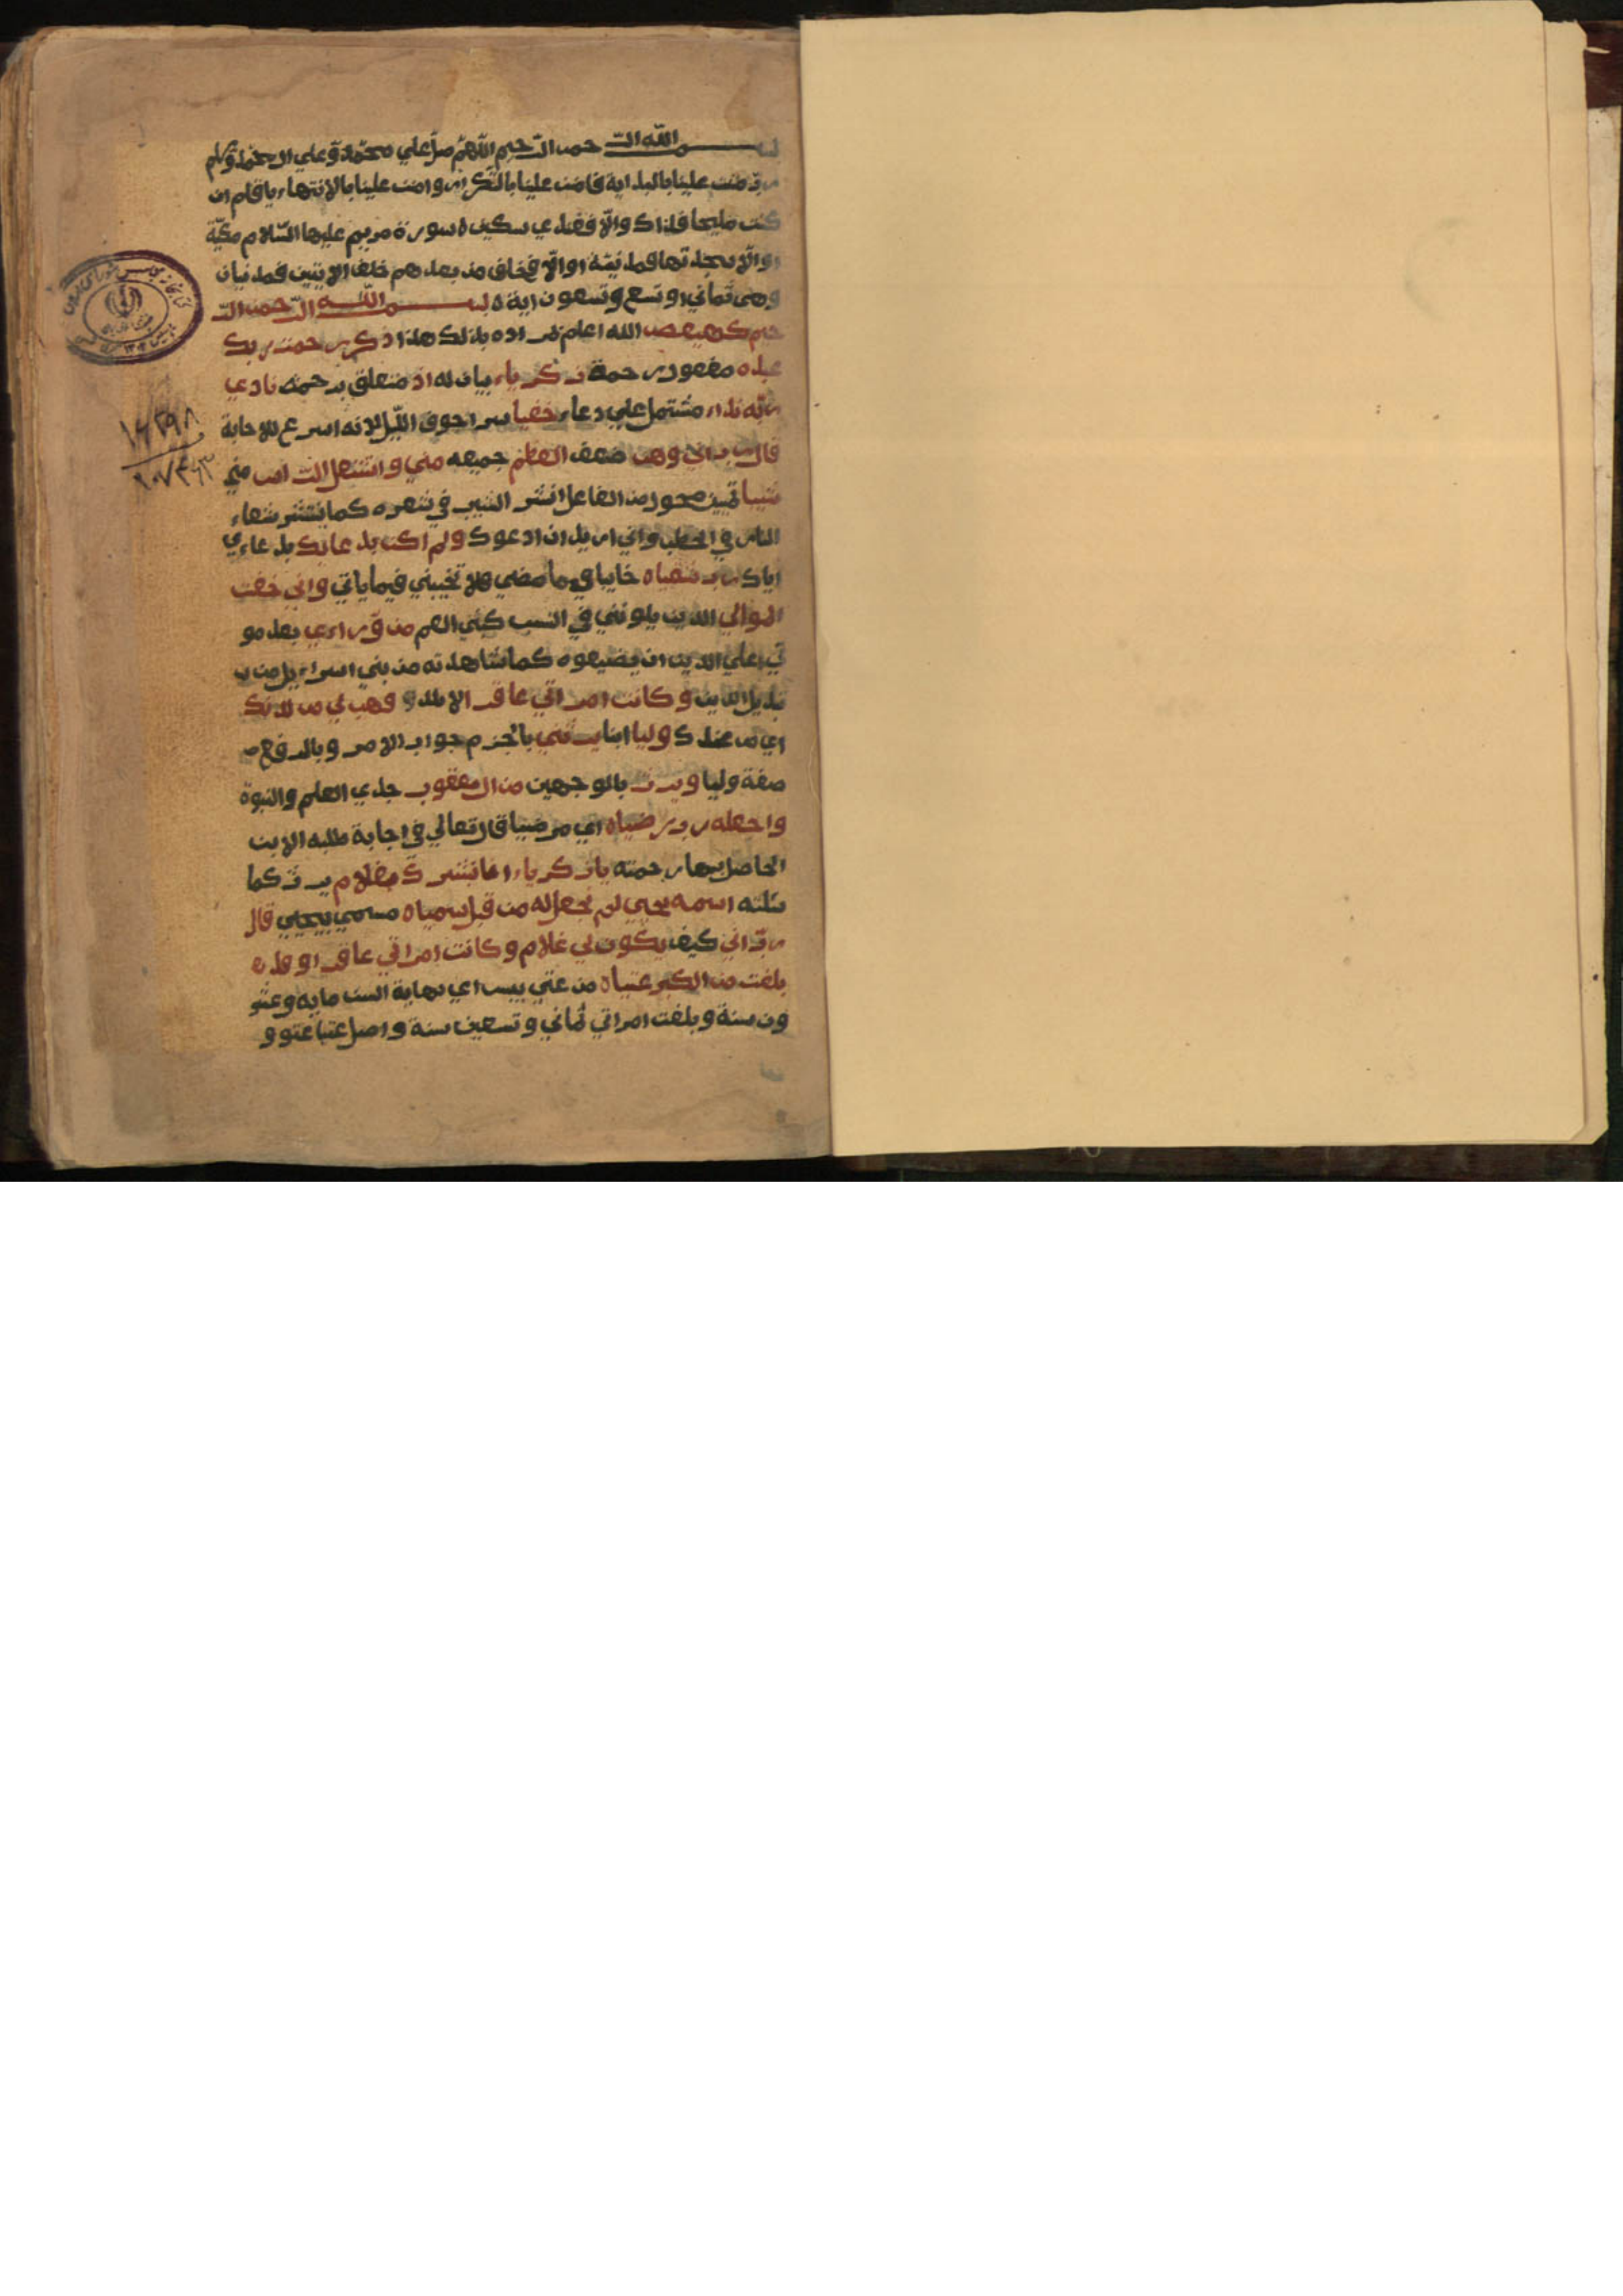 بسم الله الرحمن الرحيم اللهم صل علي محمد وعلي ال محمد وسلم
رب مننت علينا بالبداية فامنن علينا بالتكرار وامنن علينا بالانتهاء يا قلم ان
كنت مليحا فلذاك والا فعندي سكين ه سورة مريم عليها السلام مكية
او الا سجدتها فمدنية او الا فخلف من بعدهم خلف الايتين فمدنيان
وهي ثماني او تسع وتسعون اية ه بسم الله الرحمن الر
حيم كهيعص الله اعلم بمراده بذلك هذا ذكر رحمت ربك
عبده مفعول رحمة زكرياء بيان له اذ متعلق برحمة نادي
ربه نداء مشتمل علي دعاء خفيا سرا جوف الليل لانه اسرع للاجابة
قال رب اني وهن ضعف العظم جميعه مني واشتعل الراس مني
شيبا تمييز محول من الفاعل انتشر الشيب في شعره كما ينتشر شعاء
النار في الحطب واني اريد ان ادعوك ولم اكن بدعائك بدعاءي
اياك رب شقياه خايبا فيما مضي فلا تخيبني فيما ياتي واني خفت
الموالي الذين يلونني في النسب كبني العم من وراءي بعد مو
تي علي الدين ان يضيعوه كما شاهدته من بني اسراءيل من ت
تبديل الدين وكانت امراتي عاقرا لا تلد فهب لي من لدنك
اي من عندك وليا ابنا يرثني بالجزم جواب الامر وبالرفع ص
صفة وليا ويرث بالوجهين من ال يعقوب جدي العلم والنبوة
واجعله رب رضياه اي مرضيا قال تعالي في اجابة طلبه الابن
الحاصل بها رحمته يا زكرياء انا نبشرك بغلام يرث كما
سئلته اسمه يحيي لم نجعل له من قبل سمياه مسمي بيحيي قال
رب اني كيف يكون لي غلام وكانت امراتي عاقرا وقد
بلغت من الكبر عتياه من عتي يبس اي نهاية السن ماية وعشر
ون سنة وبلغت امراتي ثماني وتسعين سنة واصل عتيا عتوو
١٤٢٩٨